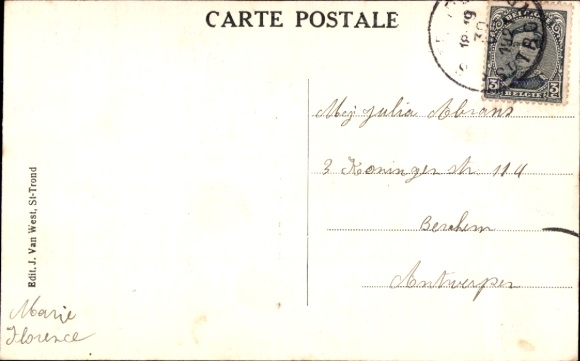 CARTE POSTALE
18-19
30
3 BELGIE 3
Mej Julia Abrans
3 Koninger str. 114
Berchem
Antwerpen
Edit. J. Van West, St-Trond
Marie
Florence